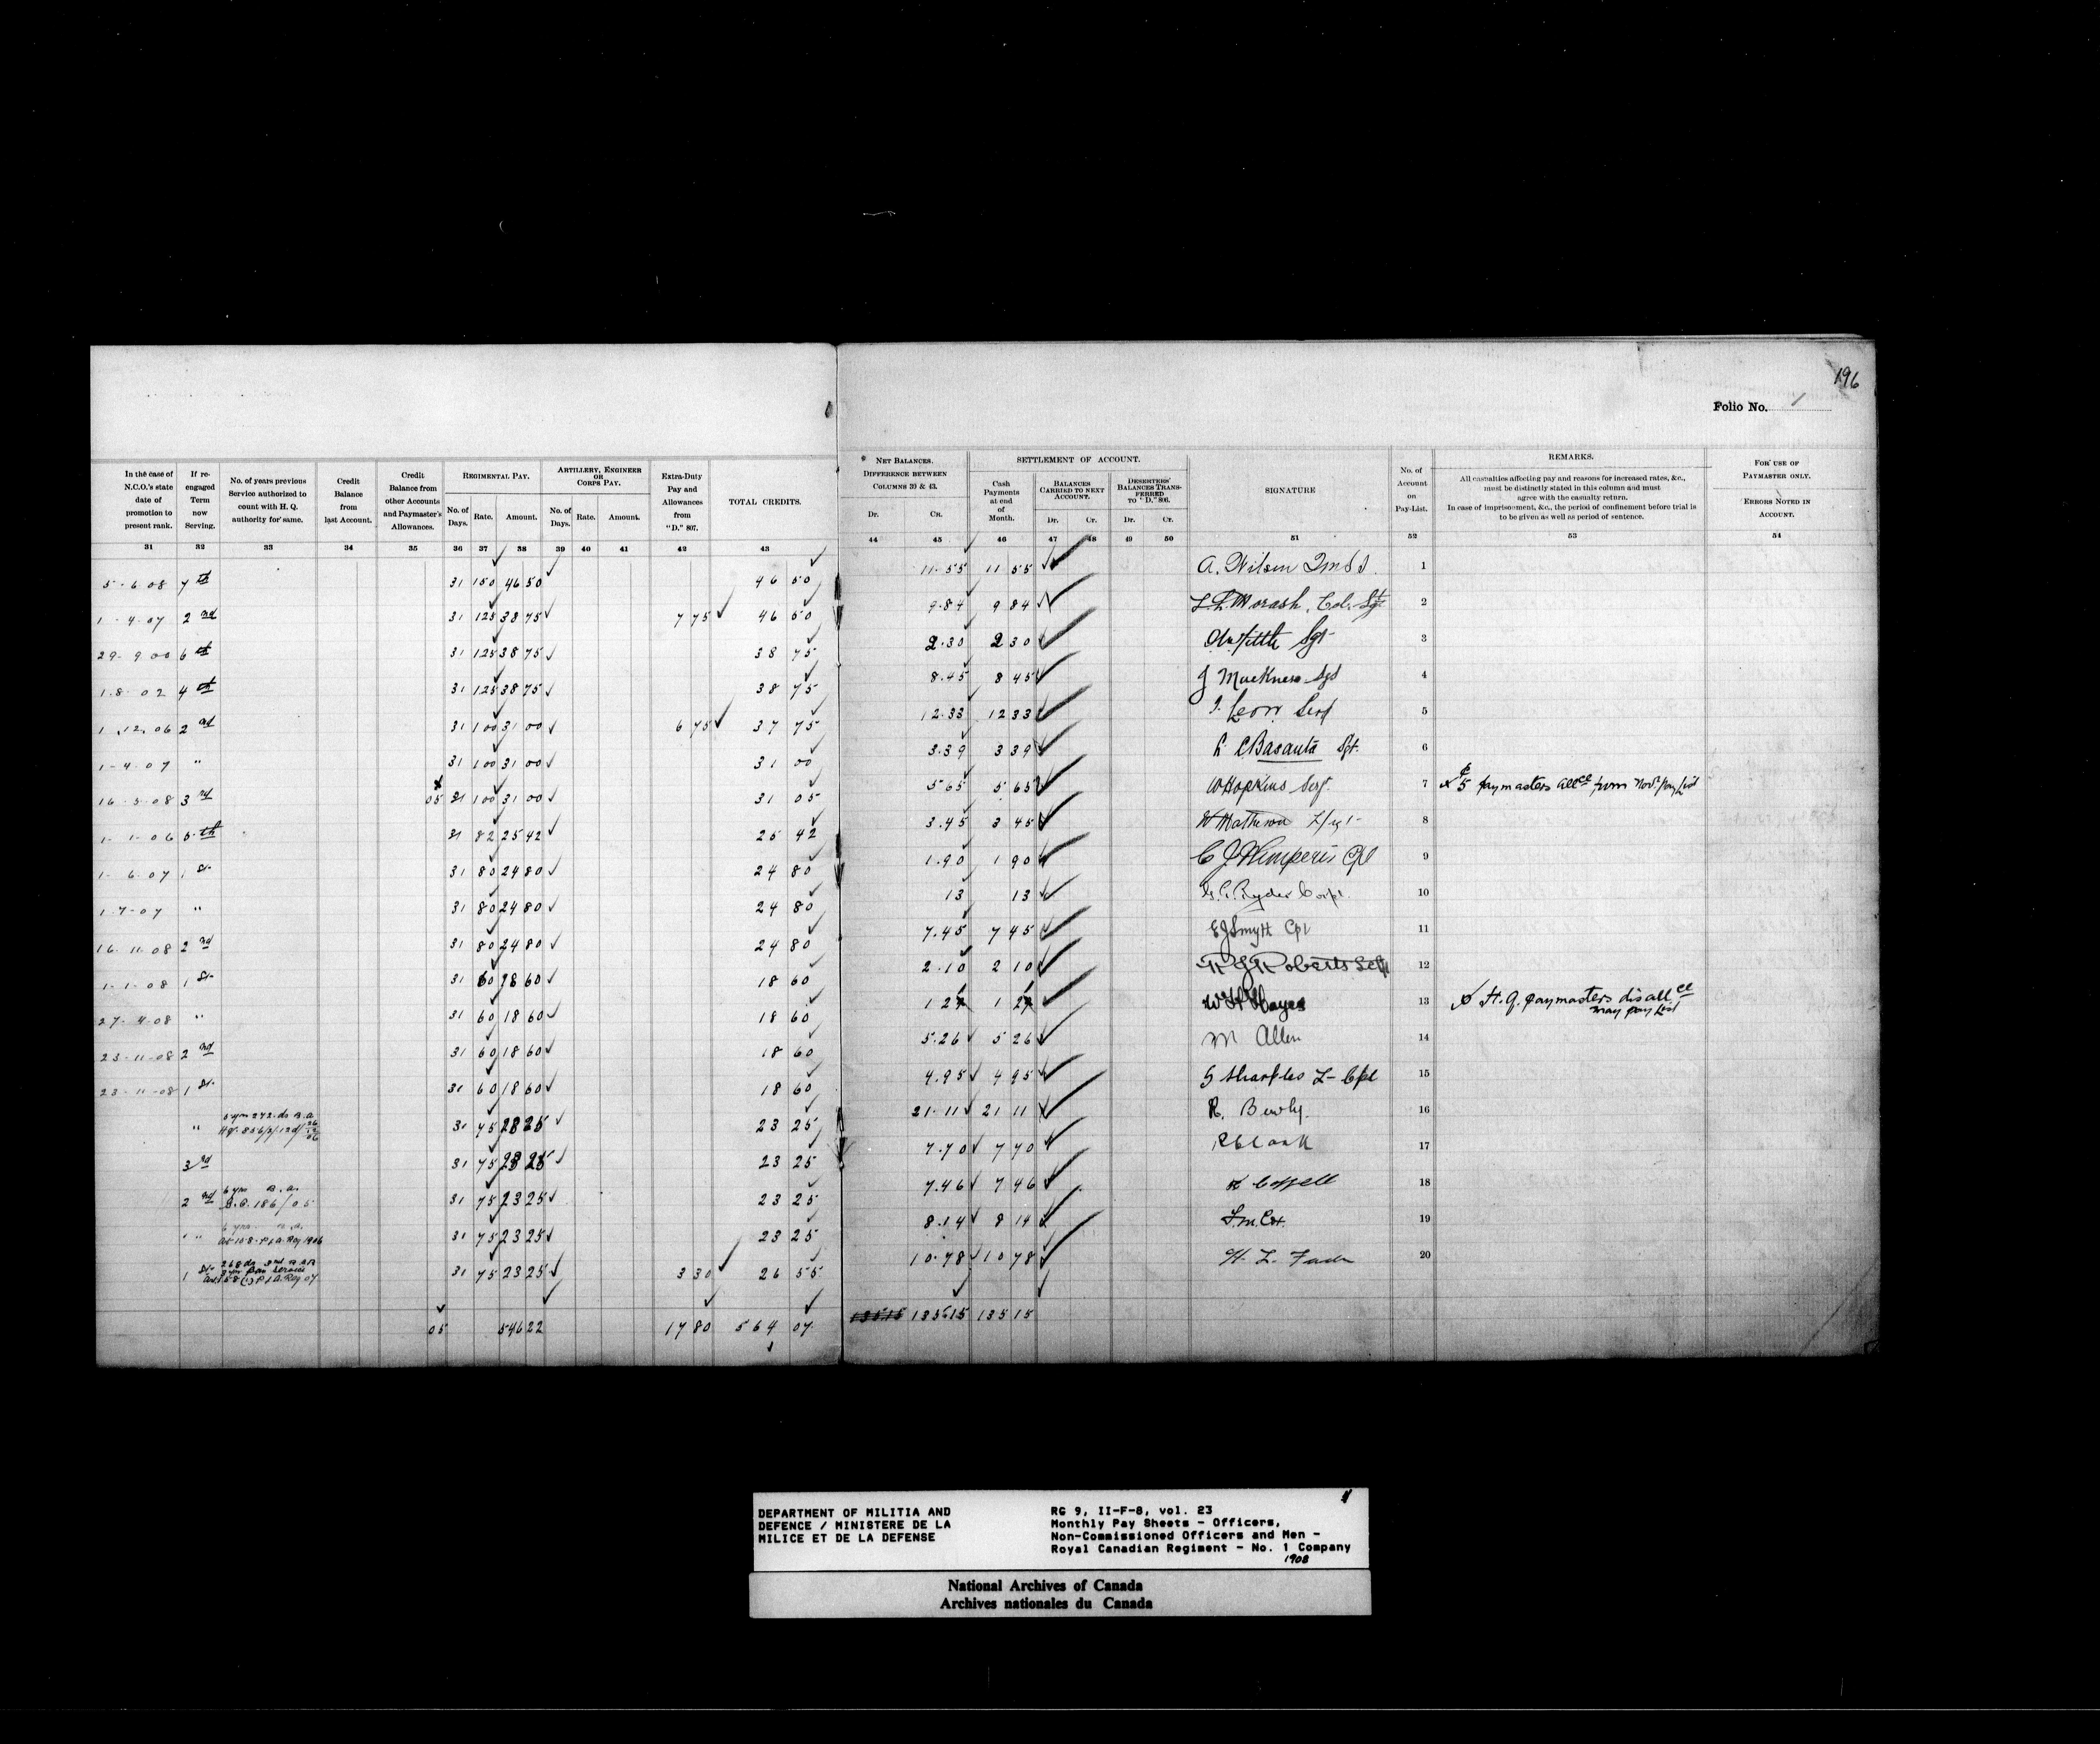 196
Folio No. 1
In the case of N.C.O.'s state date of promotion to present rank.
If re-engaged Term now Serving.
No. of years previous Service authorized to count with H. Q. authority for same.
Credit Balance from last Account.
Credit Balance from other Accounts and Paymaster's Allowances.
REGIMENTAL PAY.
No. of Days. Rate. Amount.
ARTILLERY, ENGINEER OR CORPS PAY.
No. of Days. Rate. Amount.
Extra-Duty Pay and Allowances from "D." 807.
TOTAL CREDITS.
* NET BALANCES.
DIFFERENCE BETWEEN COLUMNS 39 & 43.
Dr. CR.
SETTLEMENT OF ACCOUNT.
Cash Payments at end of Month.
BALANCES CARRIED TO NEXT ACCOUNT.
Dr. Cr.
DESERTERS' BALANCES TRANSFERRED TO "D." 806.
Dr. Cr.
SIGNATURE
No. of Account on Pay-List.
REMARKS.
All casualties affecting pay and reasons for increased rates, &c., must be distinctly stated in this column and must agree with the casualty return.
In case of imprisonment, &c., the period of confinement before trial is to be given as well as period of sentence.
FOR USE OF PAYMASTER ONLY.
ERRORS NOTED IN ACCOUNT.
31 32 33 34 35 36 37 38 39 40 41 42 43 44 45 46 47 48 49 50 51 52 53 54
5-6-08 7th 31 150 46 50 46 50 11.55 11 55 A. Wilson 1
1-4-07 2nd 31 125 38 75 7 75 46 50 9.84 9 84 Morash, Col. Sgt 2
29-9-00 6th 31 125 38 75 38 75 2.30 2 30 Sgt 3
1-8-02 4th 31 125 38 75 38 75 8.45 8 45 J Muckness Sgt 4
1-12-06 2nd 31 100 31 00 6 75 37 75 12.33 12 33 Leon Serg 5
1-4-07 " 31 100 31 00 31 00 3.39 3 39 Basanta Sgt. 6
16-5-08 3rd 05 31 100 31 00 31 05 5.65 5 65 W Hopkins Serg. 7 5 paymasters allce from Nov. Pay List
1-1-06 5th 31 82 25 42 25 42 3.45 3 45 W Matheson 8
1-6-07 1st 31 80 24 80 24 80 1.90 1 90 C J Cpl 9
1-7-07 " 31 80 24 80 24 80 13 13 Ryder Corpl. 10
16-11-08 2nd 31 80 24 80 24 80 7.45 7 45 E J Smyth Cpl 11
1-1-08 1st 31 60 18 60 18 60 2.10 2 10 Roberts 12
27-4-08 " 31 60 18 60 18 60 W H Hayes 13 H. Q. paymasters disallce may pay List
23-11-08 2nd 31 60 18 60 18 60 5.26 5 26 M Allen 14
23-11-08 1st 31 60 18 60 18 60 4.95 4 95 S Sharples L-Cpl 15
" 31 75 23 25 23 25 21.11 21 11 R. 16
3rd 31 75 23 25 23 25 7.70 7 70 17
2nd 6 yrs B.A. 186/05 31 75 23 25 23 25 7.46 7 46 18
" 31 75 23 25 23 25 8.14 8 14 19
1st 31 75 23 25 3 30 26 55 10.78 10 78 H. L. 20
05 546 22 17 80 564 07 135.15 135 15
DEPARTMENT OF MILITIA AND
DEFENCE / MINISTERE DE LA
MILICE ET DE LA DEFENSE
RG 9, II-F-8, vol. 23
Monthly Pay Sheets - Officers,
Non-Commissioned Officers and Men -
Royal Canadian Regiment - No. 1 Company
1908
National Archives of Canada
Archives nationales du Canada